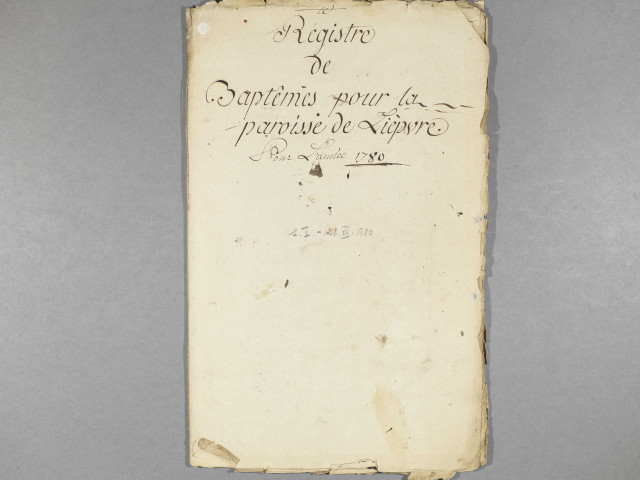 Registre
de
Baptêmes pour la
paroisse de Lièpvre.
Pour L'année 1780